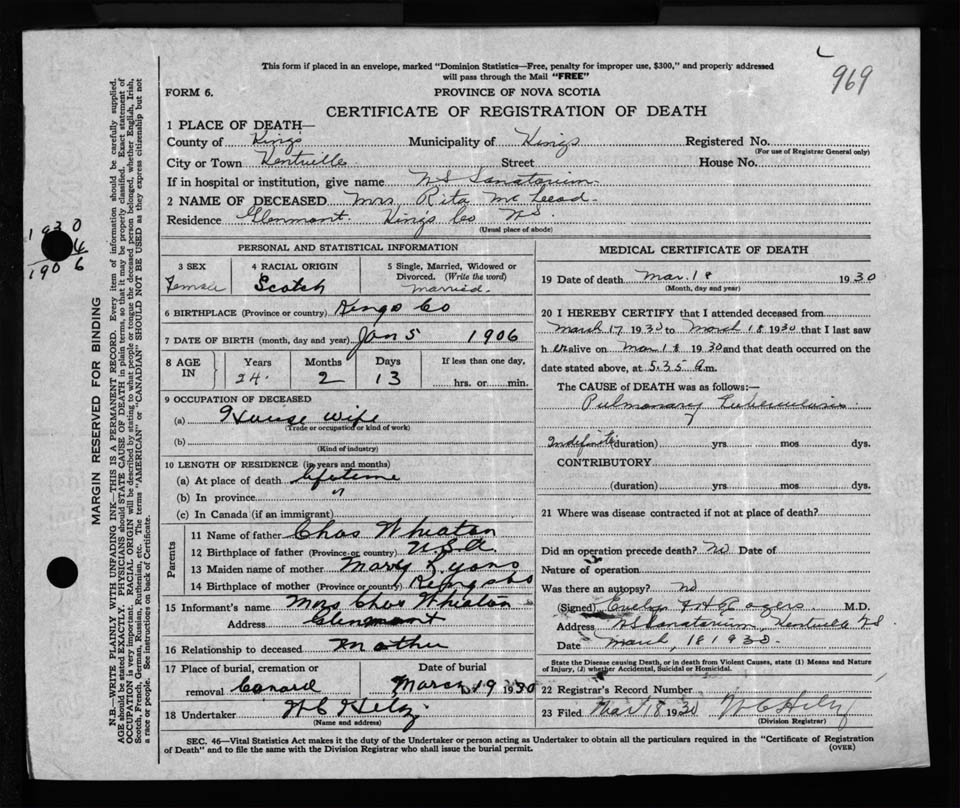 969
This form if placed in an envelope, marked "Dominion Statistics—Free, penalty for improper use, $300," and properly addressed
will pass through the Mail "FREE"
FORM 6.
PROVINCE OF NOVA SCOTIA
CERTIFICATE OF REGISTRATION OF DEATH
1 PLACE OF DEATH—
County of Kings Municipality of Kings Registered No.
(For use of Registrar General only)
City or Town Kentville Street House No.
If in hospital or institution, give name N S Sanatorium
2 NAME OF DECEASED Mrs Rita McLeod
Residence Glenmont. Kings Co NS.
(Usual place of abode)
PERSONAL AND STATISTICAL INFORMATION
3 SEX
Female
4 RACIAL ORIGIN
Scotch
5 Single, Married, Widowed or
Divorced. (Write the word)
married.
6 BIRTHPLACE (Province or country) Kings Co
7 DATE OF BIRTH (month, day and year) Jan 5 1906
8 AGE IN
Years Months Days
24. 2 13
If less than one day,
hrs. or min.
9 OCCUPATION OF DECEASED
(a) House wife
(Trade or occupation or kind of work)
(b)
(Kind of industry)
10 LENGTH OF RESIDENCE (in years and months)
(a) At place of death lifetime
(b) In province "
(c) In Canada (if an immigrant)
Parents
11 Name of father Chas Wheaton
12 Birthplace of father (Province or country) U.S.A.
13 Maiden name of mother Mary Lyons
14 Birthplace of mother (Province or country) Kings Co
15 Informant's name Mrs Chas Wheaton
Address Glenmont
16 Relationship to deceased Mother
17 Place of burial, cremation or
removal Canard
Date of burial
March 19 1930
18 Undertaker
(Name and address)
MEDICAL CERTIFICATE OF DEATH
19 Date of death Mar. 18 1930
(Month, day and year)
20 I HEREBY CERTIFY that I attended deceased from
March 17 1930 to March 18 1930 that I last saw
h er alive on Mar 18 1930 and that death occurred on the
date stated above, at 5.35 a.m.
The CAUSE of DEATH was as follows:—
Pulmonary Tuberculosis
Indefinite (duration) yrs mos dys.
CONTRIBUTORY
(duration) yrs. mos. dys.
21 Where was disease contracted if not at place of death?
Did an operation precede death? no Date of
Nature of operation
Was there an autopsy? no
(Signed) Rogers M.D.
Address NS Sanatorium, Kentville NS.
Date March, 18 1930
State the Disease causing Death, or in death from Violent Causes, state (1) Means and Nature
of Injury, (2) whether Accidental, Suicidal or Homicidal.
22 Registrar's Record Number
23 Filed Mar 18 1930
(Division Registrar)
SEC. 46—Vital Statistics Act makes it the duty of the Undertaker or person acting as Undertaker to obtain all the particulars required in the "Certificate of Registration
of Death" and to file the same with the Division Registrar who shall issue the burial permit.
(OVER)
MARGIN RESERVED FOR BINDING
N.B.—WRITE PLAINLY WITH UNFADING INK—THIS IS A PERMANENT RECORD. Every item of information should be carefully supplied.
AGE should be stated EXACTLY. PHYSICIANS should STATE CAUSE OF DEATH in plain terms, so that it may be properly classified. Exact statement of
OCCUPATION is very important. RACIAL ORIGIN will be described by stating to what people or tongue the deceased person belonged, whether English, Irish,
Scotch, French, German, Russian, Ruthenian, etc. The terms "AMERICAN" or "CANADIAN" SHOULD NOT BE USED as they express citizenship but not
a race or people. See instructions on back of Certificate.
1930
1906